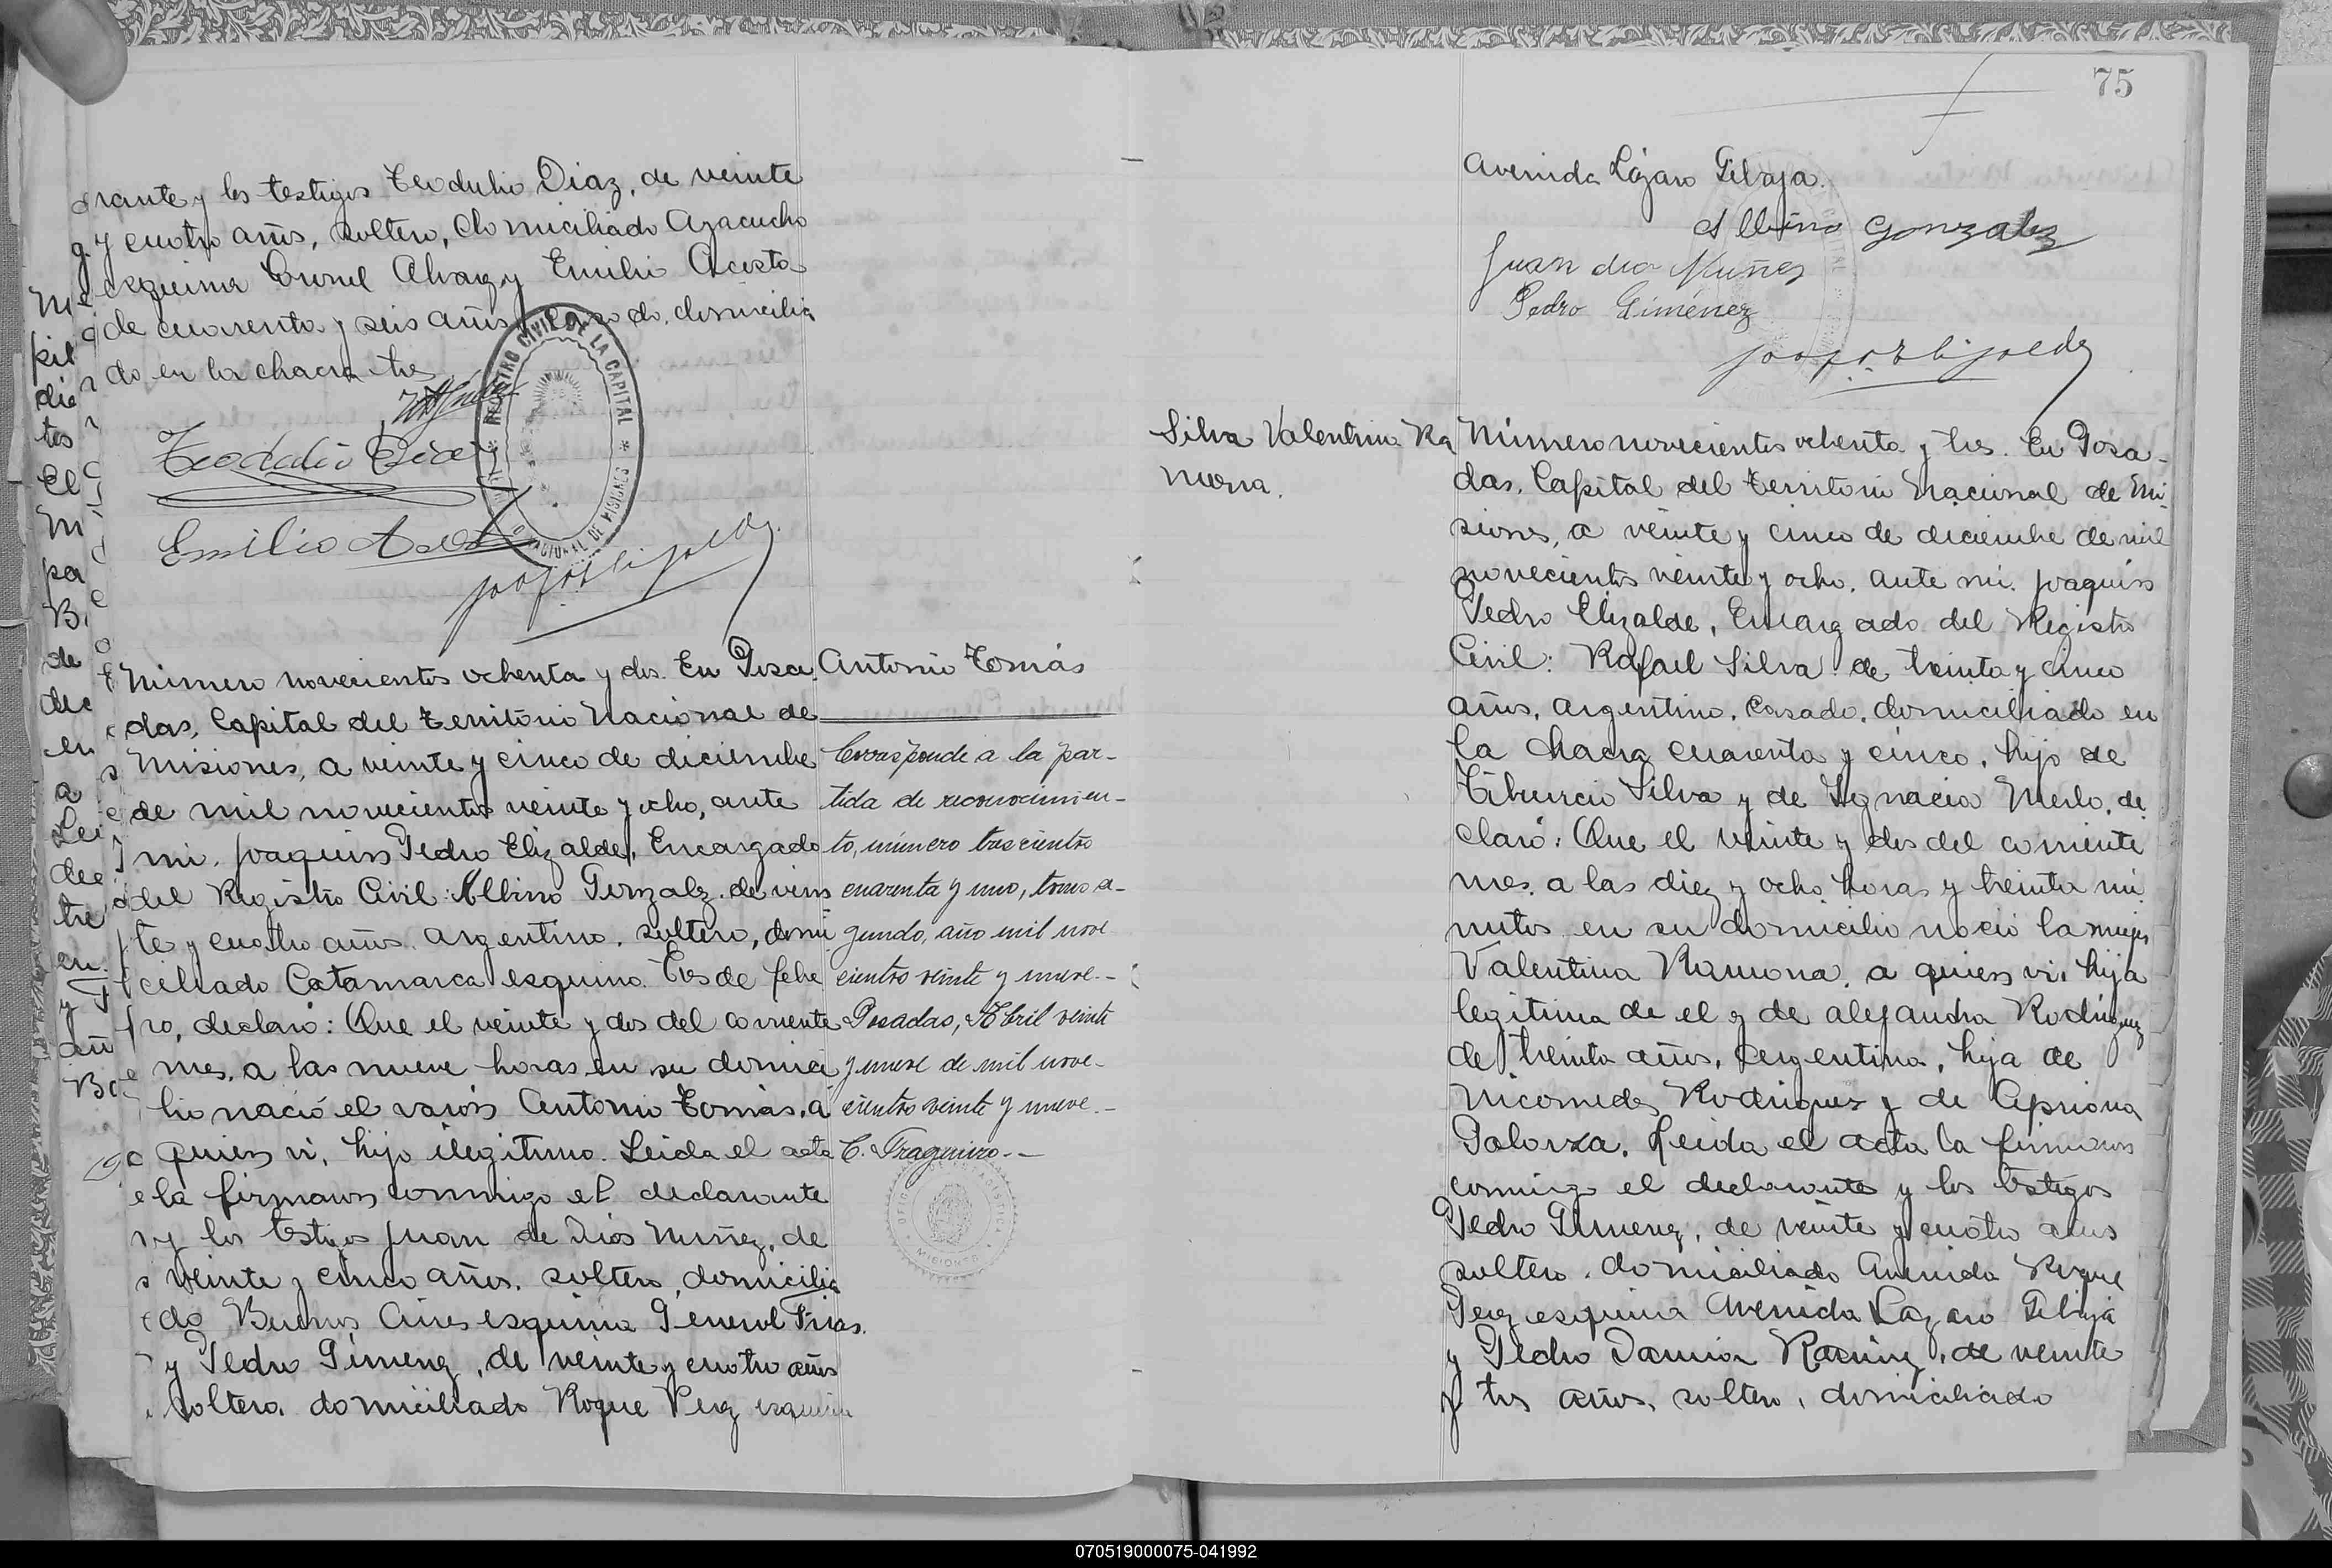 rante y los testigos Teodulio Diaz, de veinte
y cuatro años, soltero, domiciliado Ayacucho
esquina Coronel Alvarez y Emilio Acosta
de cuarenta y seis años, casado, domicilia
do en la chacra tres
Teodulio Diaz
Emilio Acosta
REGISTRO CIVIL DE LA CAPITAL
NACIONAL DE MISIONES
Número novecientos ochenta y dos. En Posa
das, Capital del Territorio Nacional de
Misiones, a veinte y cinco de diciembre
de mil novecientos veinte y ocho, ante
mi, Joaquin Pedro Elizalde, Encargado
del Registro Civil: Albino Gonzalez de vein
te y cuatro años, argentino, soltero, domi
ciliado Catamarca esquina Tres de febre
ro, declaró: Que el veinte y dos del corriente
mes, a las nueve horas en su domici
lio nació el varón Antonio Tomás, a
quien vi, hijo ilegitimo. Leida el acta
la firmaron conmigo el declarante
y los testigos Juan de Dios Nuñez, de
veinte y cinco años, soltero, domicilia
do Buenos Aires esquina General Frias
y Pedro Gimenez, de veinte y cuatro años
soltero, domiciliado Roque Perez esquina
Antonio Tomás
Corresponde a la par-
tida de reconocimien-
to, número trescientos
cuarenta y uno, tomo se-
gundo, año mil nove
cientos veinte y nueve.-
Posadas, Abril veinte
y nueve de mil nove-
cientos veinte y nueve.-
C. Fragueiro.-
MISIONES
75
Avenida Lázaro Gibaja.
Albino Gonzalez
Juan dio Nuñez
Pedro Giménez
Silva Valentina Ra
mona.
Número novecientos ochenta y tres. En Posa-
das, Capital del Territorio Nacional de Mi
siones, a veinte y cinco de diciembre de mil
novecientos veinte y ocho, ante mi, Joaquin
Pedro Elizalde, Encargado del Registro
Civil: Rafael Silva de treinta y cinco
años, argentino, casado, domiciliado en
la chacra cuarenta y cinco, hijo de
Tiburcio Silva y de Ignacia Merlo, de
claró: Que el veinte y dos del corriente
mes, a las diez y ocho horas y treinta mi
nutos en su domicilio nació la mujer
Valentina Ramona, a quien vi, hija
legitima de el y de Alejandra Rodriguez
de treinta años, argentina, hija de
Nicomedes Rodriguez y de Cipriana
Leida el acta la firmaron
conmigo el declarante y los testigos
Pedro Gimenez, de veinte y cuatro años
soltero, domiciliado Avenida Roque
Perez esquina Avenida Lazaro Gibaja
y Pedro Damian Ramirez, de veinte
y tres años, soltero, domiciliado
070519000075-041992